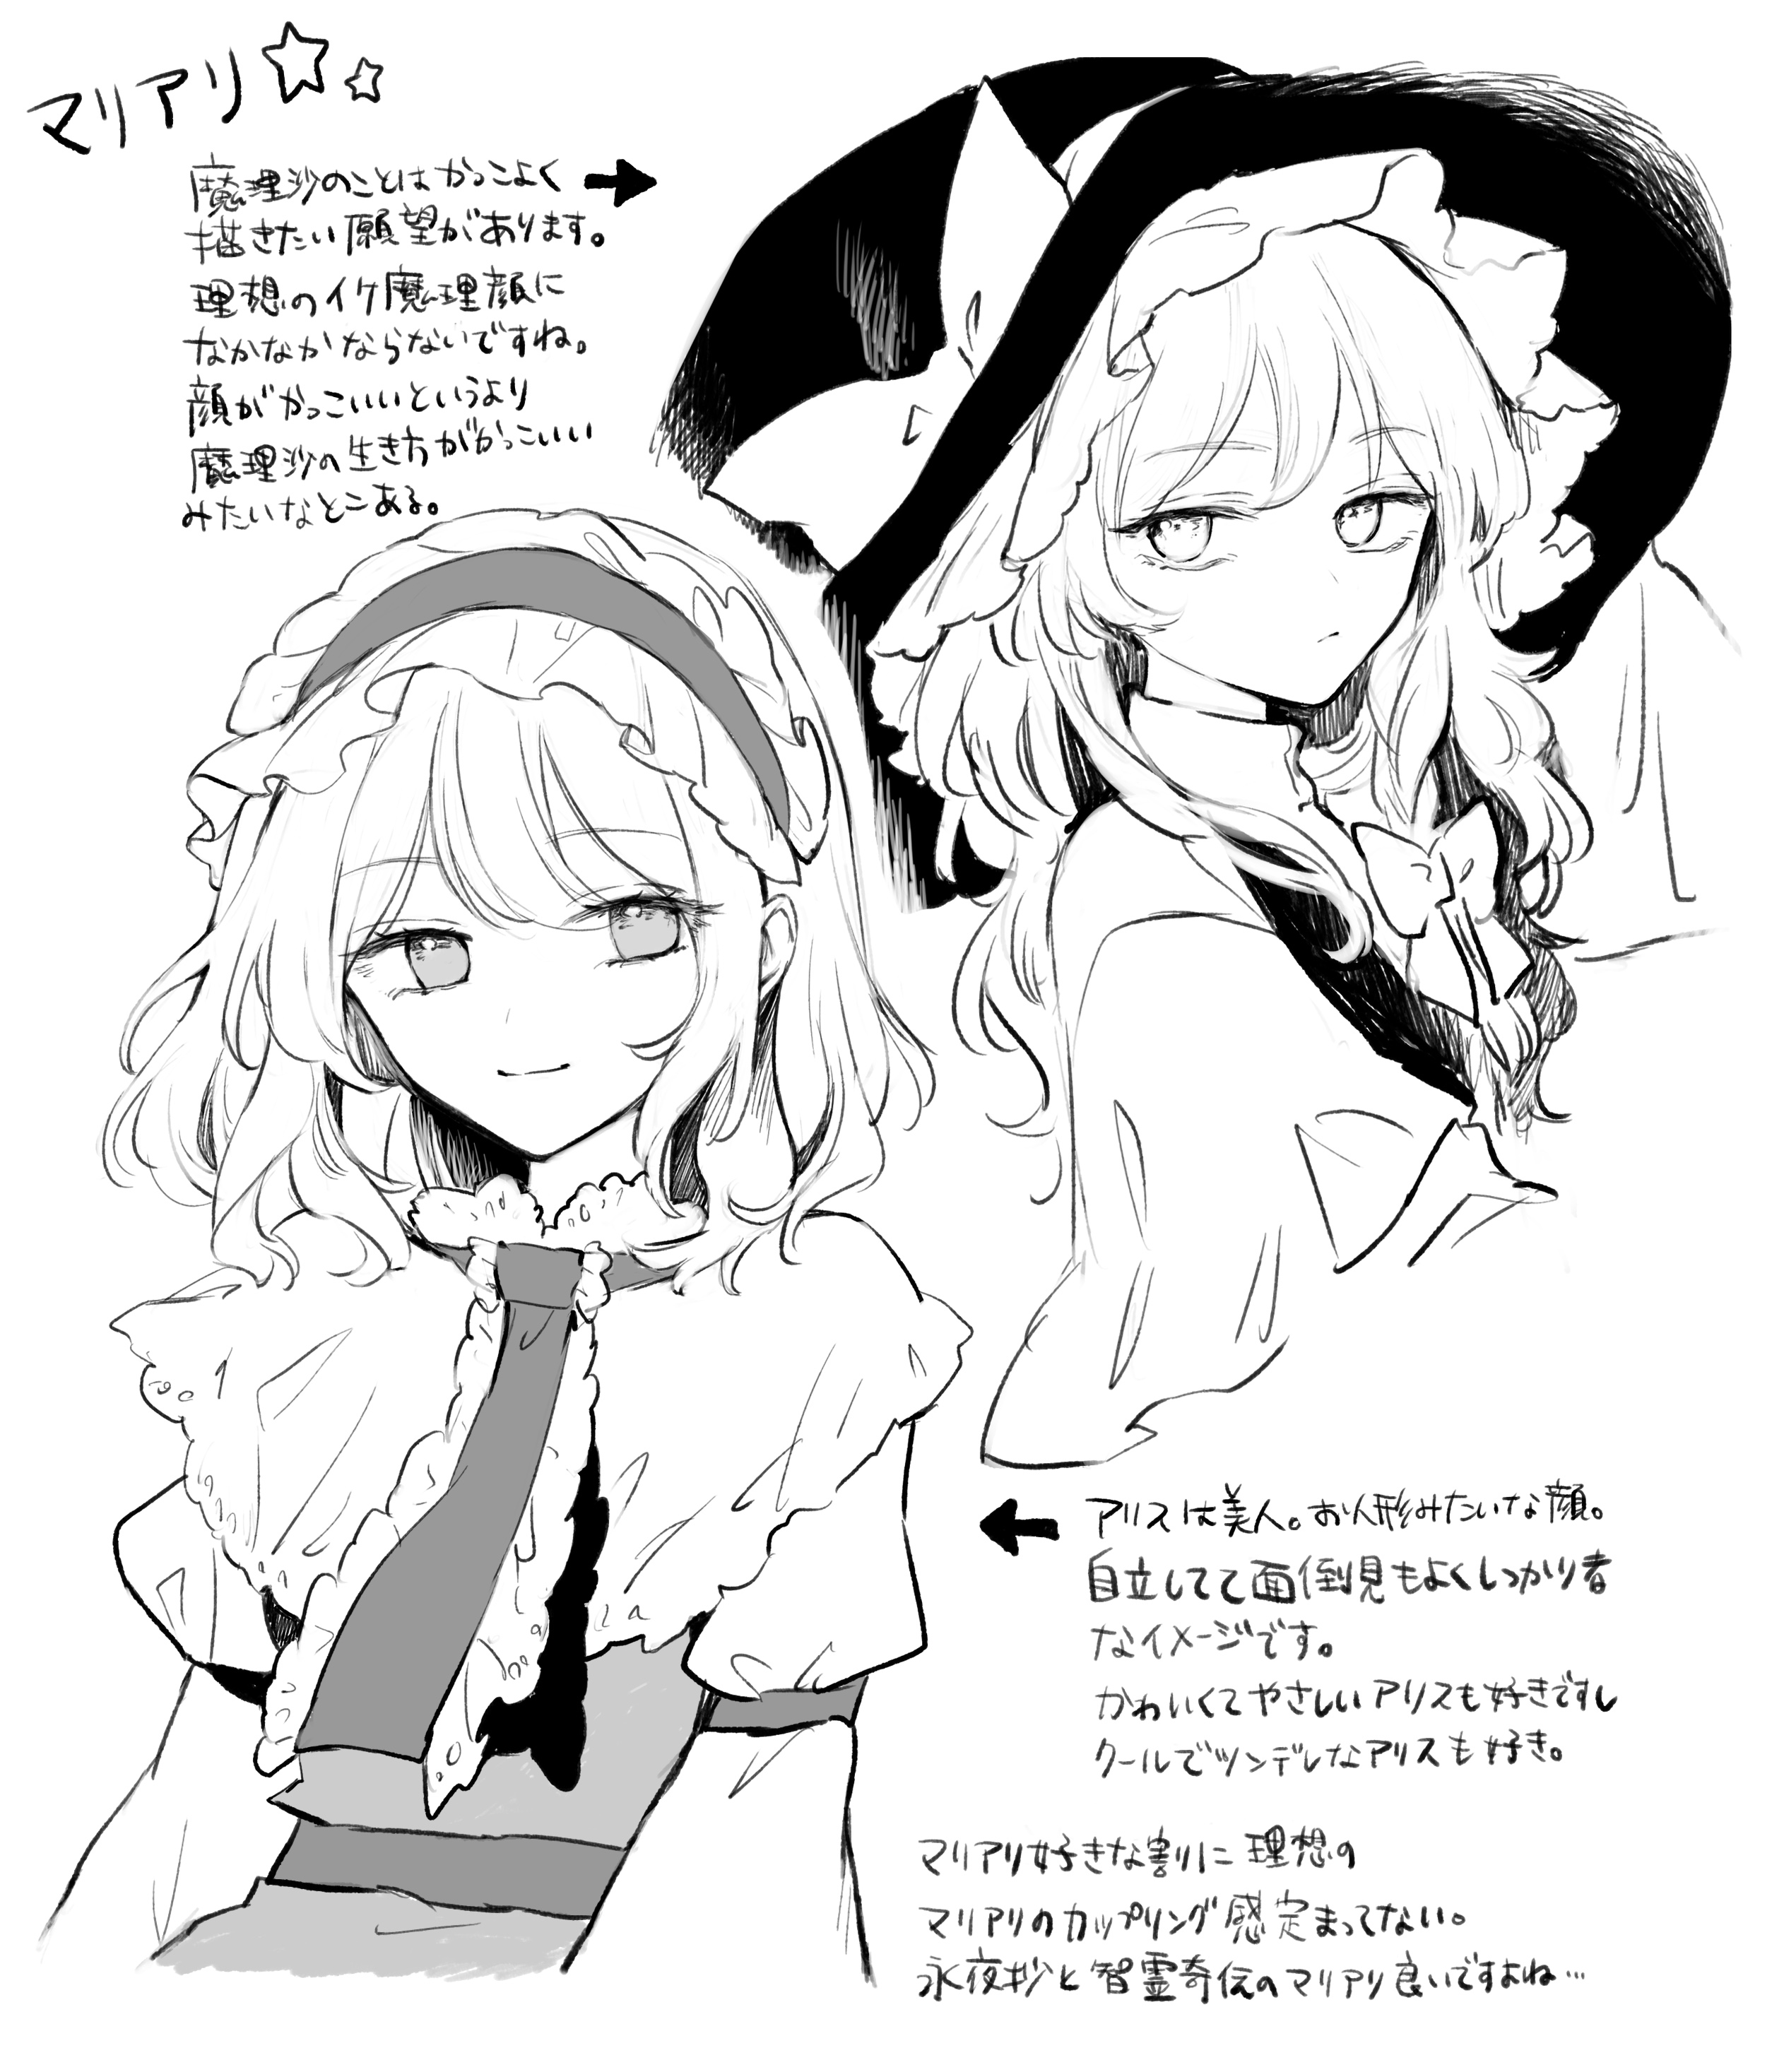 マリアリ☆☆
魔理沙のことはかっこよく
描きたい願望があります。
理想のイケ魔理顔に
なかなかならないですね。
顔がかっこいいというより
魔理沙の生き方がかっこいい
みたいなとこある。
アリスは美人。お人形みたいな顔。
自立してて面倒見もよくしっかり者
なイメージです。
かわいくてやさしいアリスも好きですし
クールでツンデレなアリスも好き。
マリアリ好きな割に理想の
マリアリのカップリング感定まってない。
永夜抄と智霊奇伝のマリアリ良いですよね…